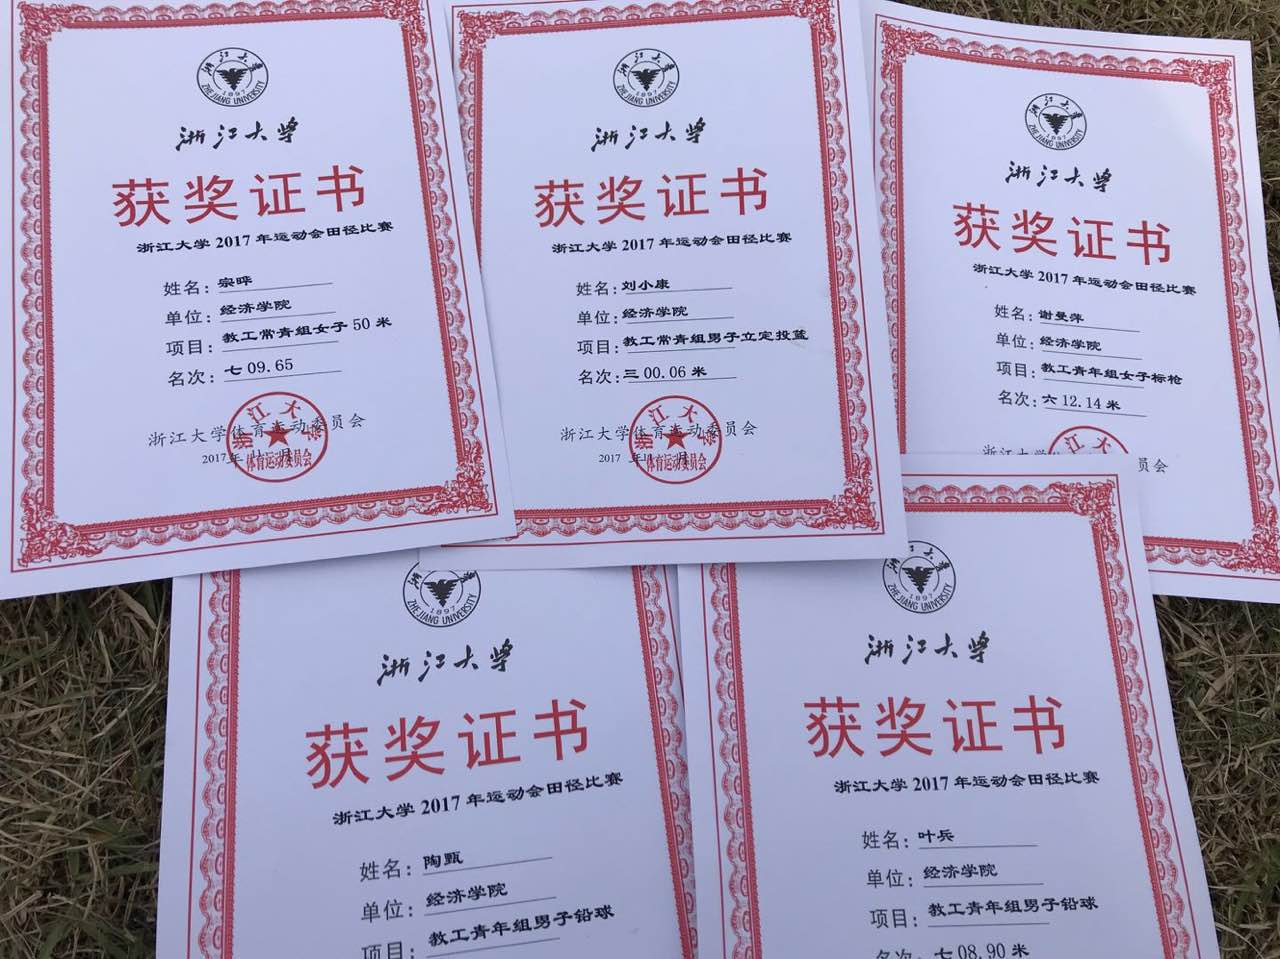 浙江大学
ZHEJIANG UNIVERSITY
1897
浙江大学
获奖证书
浙江大学 2017 年运动会田径比赛
姓名: 宗晔
单位: 经济学院
项目: 教工常青组女子 50 米
名次: 七 09.65
浙江大学体育运动委员会
2017 年 11 月
浙江大学
体育运动委员会
浙江大学
ZHEJIANG UNIVERSITY
1897
浙江大学
获奖证书
浙江大学 2017 年运动会田径比赛
姓名: 刘小康
单位: 经济学院
项目: 教工常青组男子立定投篮
名次: 三 00.06 米
浙江大学体育运动委员会
2017 年 11 月
浙江大学
体育运动委员会
浙江大学
ZHEJIANG UNIVERSITY
1897
浙江大学
获奖证书
浙江大学 2017 年运动会田径比赛
姓名: 谢曼萍
单位: 经济学院
项目: 教工青年组女子标枪
名次: 六 12.14 米
浙江大学
员会
江大
浙江大学
ZHEJIANG UNIVERSITY
1897
浙江大学
获奖证书
浙江大学 2017 年运动会田径比赛
姓名: 陶甄
单位: 经济学院
项目: 教工青年组男子铅球
浙江大学
ZHEJIANG UNIVERSITY
1897
浙江大学
获奖证书
浙江大学 2017 年运动会田径比赛
姓名: 叶兵
单位: 经济学院
项目: 教工青年组男子铅球
名次: 七 08.90 米